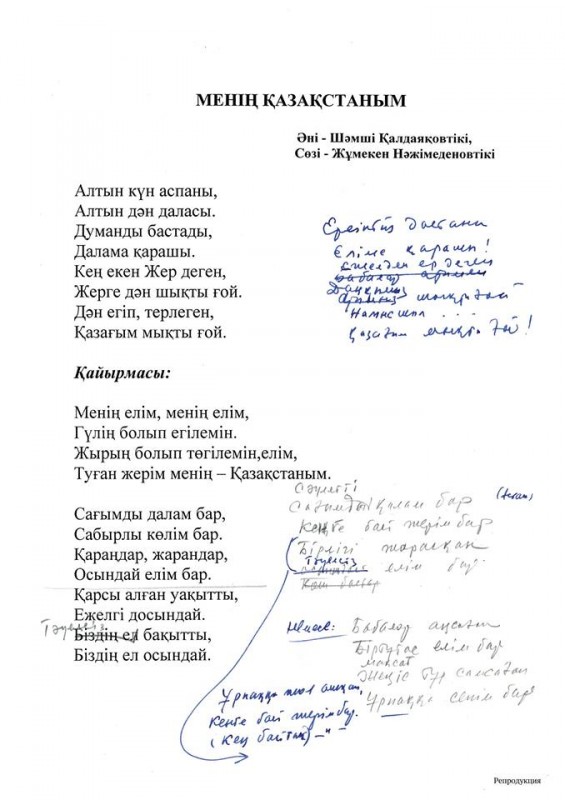 МЕНІҢ ҚАЗАҚСТАНЫМ
Әні - Шәмші Қалдаяқовтікі,
Сөзі - Жұмекен Нәжімеденовтікі
Алтын күн аспаны,
Алтын дән даласы.
Думанды бастады,
Далама қарашы.
Кең екен Жер деген,
Жерге дән шықты ғой.
Дән егіп, терлеген,
Қазағым мықты ғой.
Ерліктің дастаны
Еліме қарашы!
Ежелден ер деген
Даңқымыз шықты ғой
Намысын ...
Қазағым мықты ғой!
Қайырмасы:
Менің елім, менің елім,
Гүлің болып егілемін.
Жырың болып төгілемін,елім,
Туған жерім менің – Қазақстаным.
Сағымды далам бар,
Сабырлы көлім бар.
Қараңдар, жарандар,
Осындай елім бар.
Қарсы алған уақытты,
Ежелгі досындай.
Тәуелсіз
Біздің ел бақытты,
Біздің ел осындай.
Сәулетті
қалам бар
Кеңге бай жерім бар
Бірлігі жарасқан
Тәуелсіз елім бар
Немесе: Бабалар аңсаған
Біртұтас елім бар
мақсат
Ұрпаққа сенім бар
Ұрпаққа жол ашқан,
Кеңге бай жерім бар.
(Кең байтақ) –"–
Репродукция